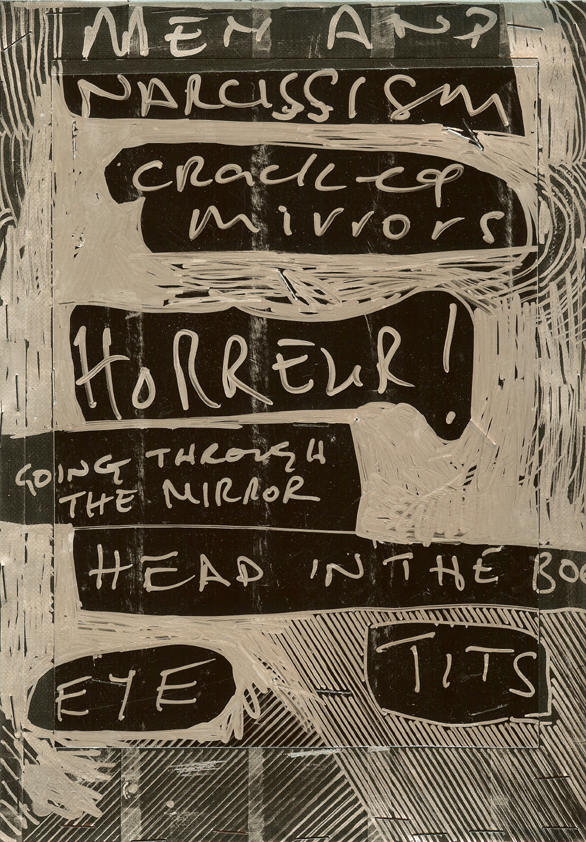 MEN AND
NARCISSISM
cracked
mirrors
HORREUR!
GOING THROUGH
THE MIRROR
HEAD IN THE BOO
EYE TITS